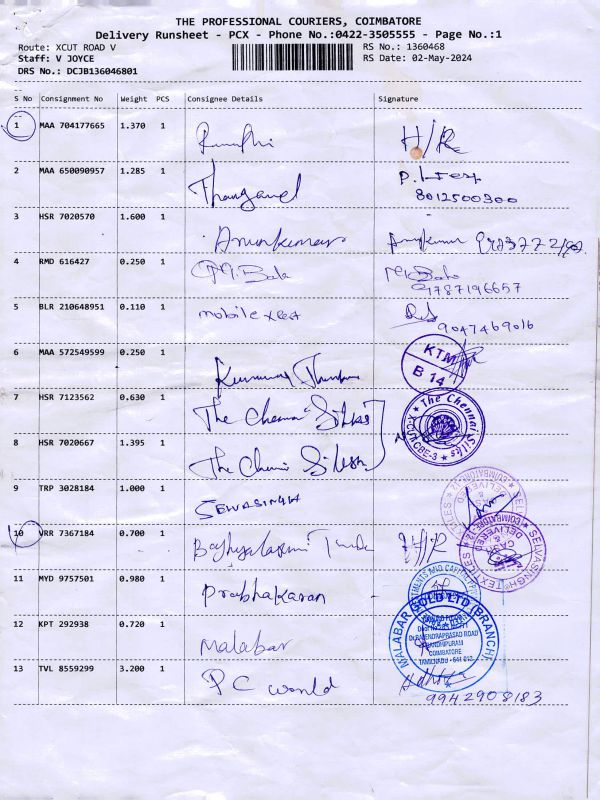 THE PROFESSIONAL COURIERS, COIMBATORE
Delivery Runsheet - PCX - Phone No.:0422-3505555 - Page No.:1
Route: XCUT ROAD V RS No.: 1360468
Staff: V JOYCE RS Date: 02-May-2024
DRS No.: DCJB136046801
S No Consignment No Weight PCS Consignee Details Signature
1 MAA 704177665 1.370 1 H/R
2 MAA 650090957 1.285 1 Thangavel
8012500300
3 HSR 7020570 1.600 1 Arunkumar
4 RMD 616427 0.250 1 M. Bala
9787196657
5 BLR 210648951 0.110 1 mobile
9047469016
6 MAA 572549599 0.250 1
KTM
B 14
7 HSR 7123562 0.630 1 The Chennai Silks
The Chennai Silks
X-CUT CBE-3
8 HSR 7020667 1.395 1 The Chennai Silks
9 TRP 3028184 1.000 1 SEWASINGH
10 VRR 7367184 0.700 1 H/R
SELVASINGH TEXTILES
COIMBATORE-12
CASH
& DELIVERED
11 MYD 9757501 0.980 1 Prabhakaran
12 KPT 292938 0.720 1 Malabar
MALABAR GOLD LTD (BRANCH)
Dr.RAJENDRAPRASAD ROAD
GANDHIPURAM
COIMBATORE
TAMILNADU - 641 012.
13 TVL 8559299 3.200 1 PC world
9942908183